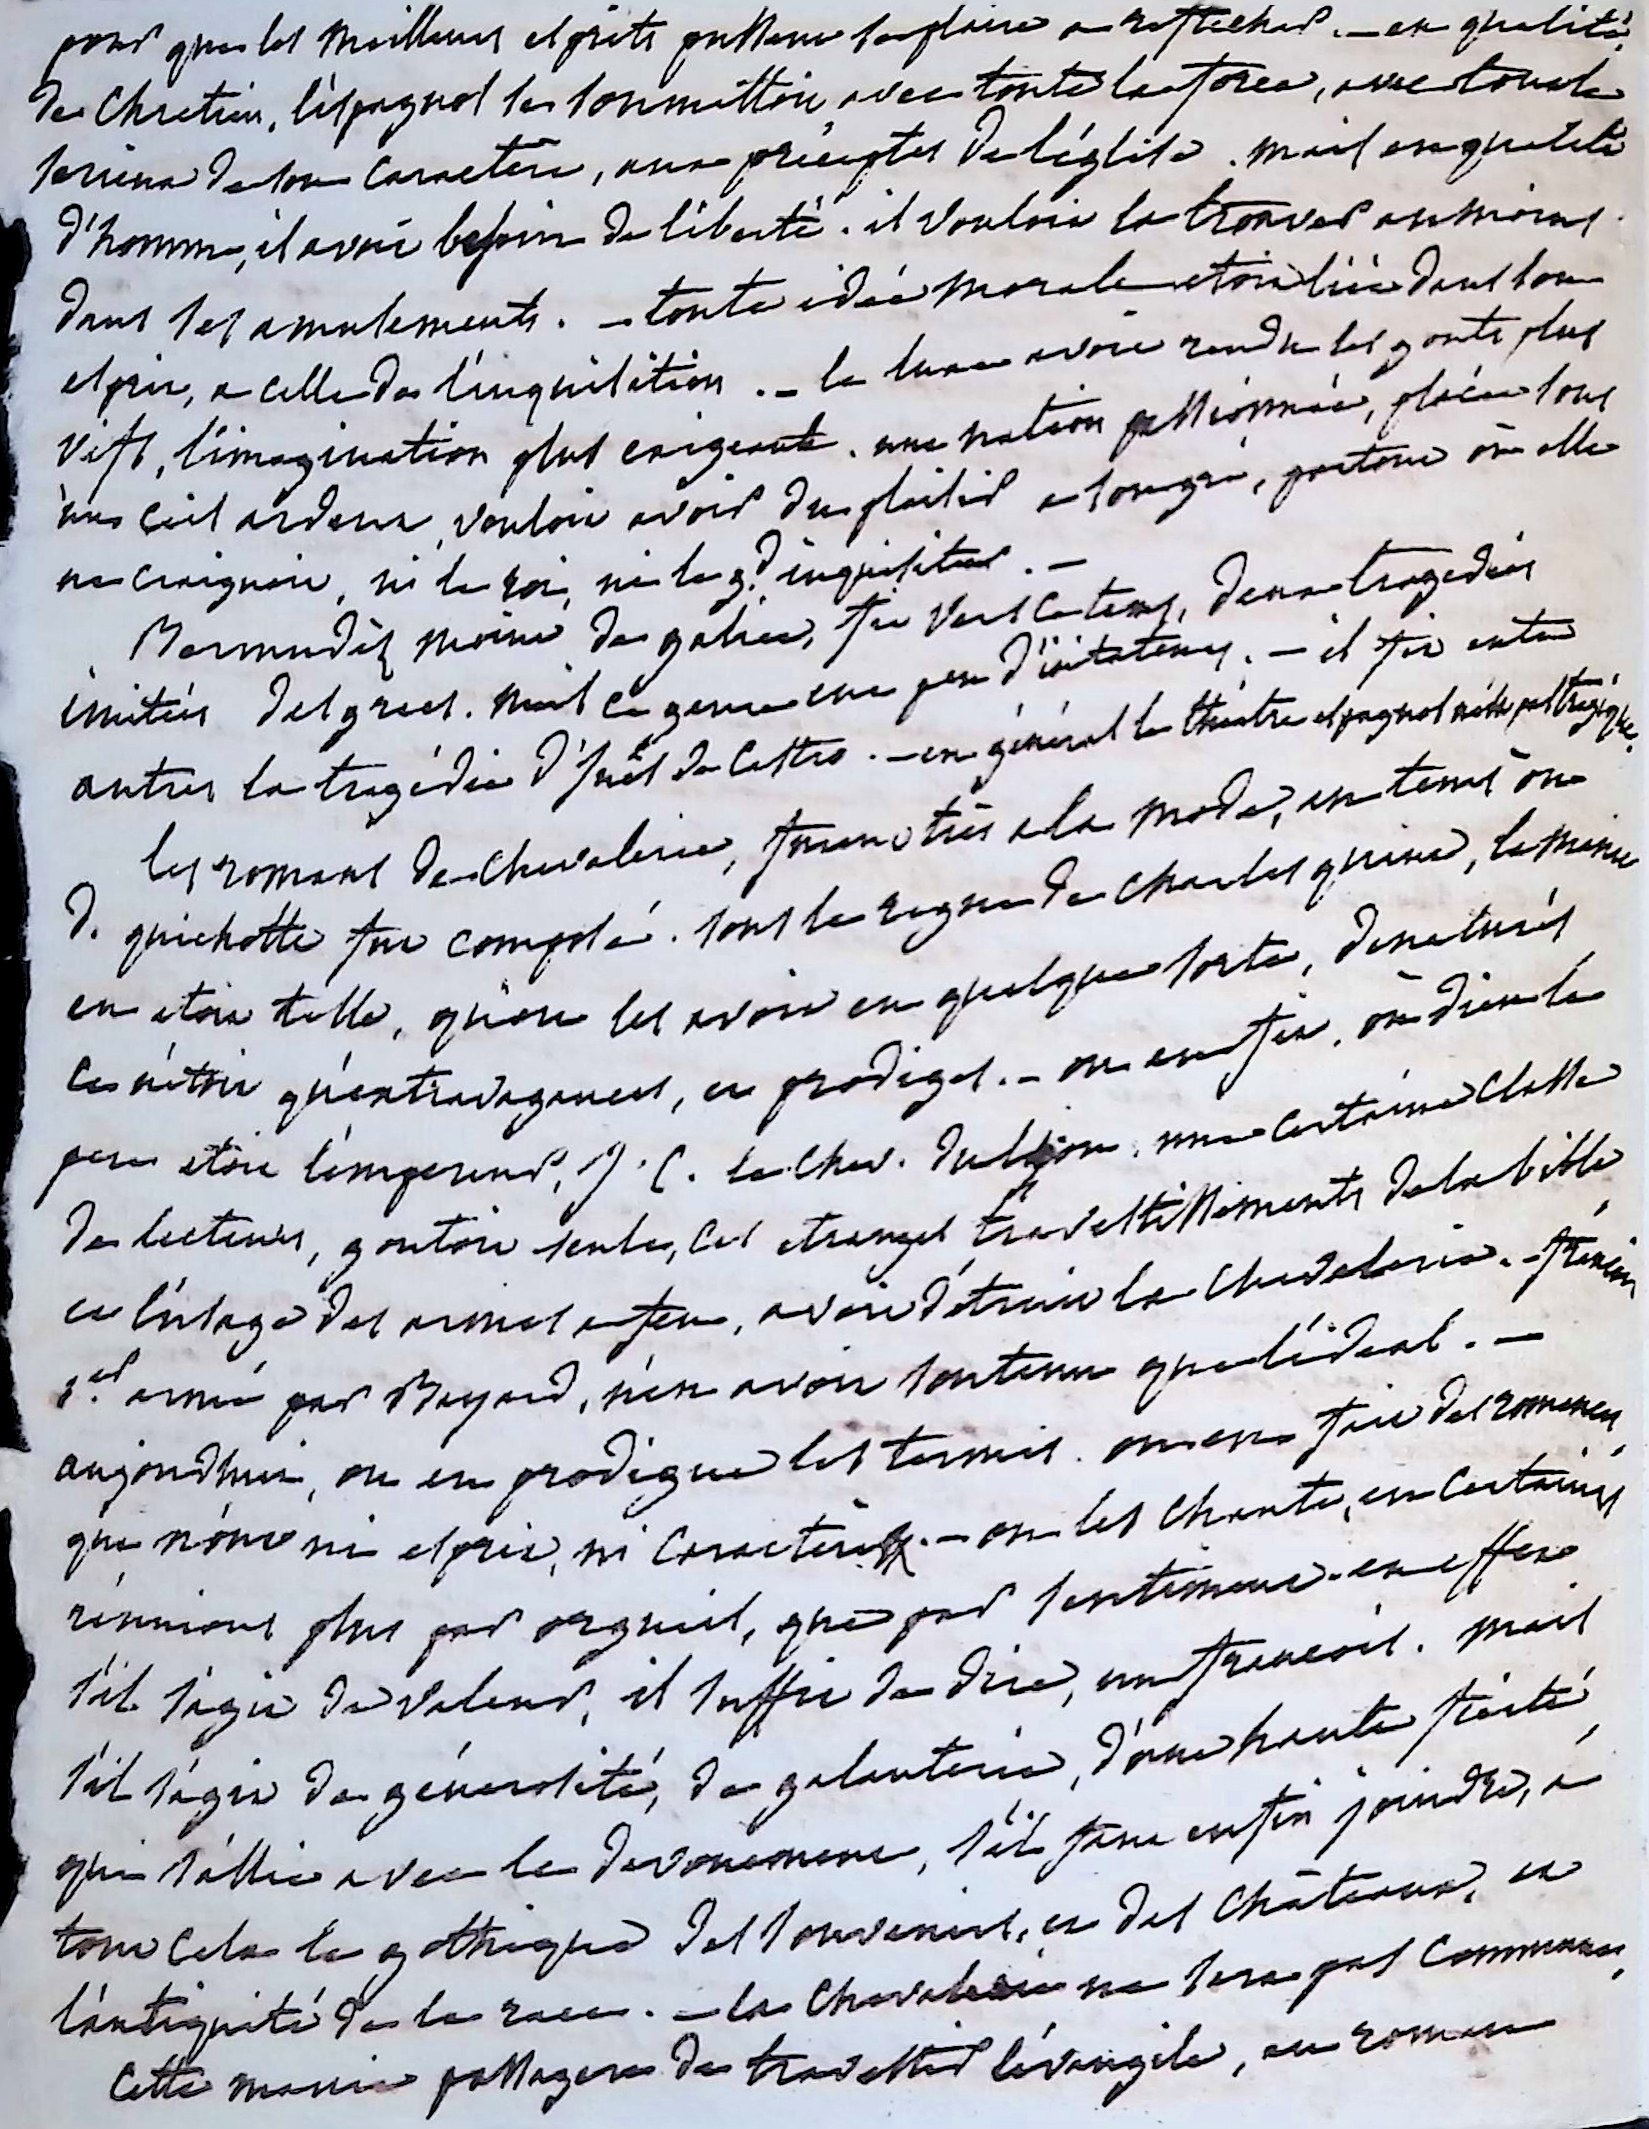 pour que les meilleurs esprits pussent se plaire a reflechir. — en qualité
de Chretien, l'espagnol se soumettoit avec toute la force, avec tout le
serieux de son caractère, aux préceptes de l'église. mais en qualité
d'homme, il avoit besoin de liberté. il vouloit la trouver au moins
dans ses amusements. — toute idée morale etoit liée dans son
esprit, a celle de l'inquisition. — le luxe avoit rendu les gouts plus
vifs, l'imagination plus exigeante. une nation passionnée, placée sous
un ciel ardent, vouloit avoir du plaisir a son gré, partout où elle
ne craignoit, ni le roi, ni le gd. inquisiteur. —
Bermudès moine de galice, fit vers ce tems, deux tragedies
imitées des grecs. mais ce genre eut peu d'imitateurs. — il fit entre
autres la tragédie d'Inès de Castro. — en général le théatre espagnol n'est pas tragique.
les romans de chevalerie, furent très a la mode, au tems où
D. quichotte fut composé. sous le regne de charles quint, la manie
en etoit telle, qu'on les avoit en quelque sorte, denaturés
ce n'étoit qu'extravagances, et prodiges. — on en fit, où dieu le
pere etoit l'empereur, J. C. le chev. du lion. une certaine classe
de lecteurs, goutoit seule, ces etranges travestissements de la bible
et l'usage des armes a feu, avoit détruit la chevalerie. — françois
1er. armé par Bayard, n'en avoit soutenu que l'idéal. —
aujourdhui, on en prodigue les termes. on en fait des romances,
qui n'ont ni esprit, ni caractère. — on les chante, en certaines
réunions plus par orgueil, que par sentiment. en effet
s'il s'agit de valeur, il suffit de dire, un françois. mais
s'il s'agit de générosité, de galanterie, d'une haute fierté,
qui s'allie avec le devouement, s'il faut enfin joindre, a
tout cela le gothique des souvenirs, et des châteaux, et
l'antiquité de la race. — la chevalerie ne sera pas commune,
cette manie passagere de travestir l'évangile, en roman